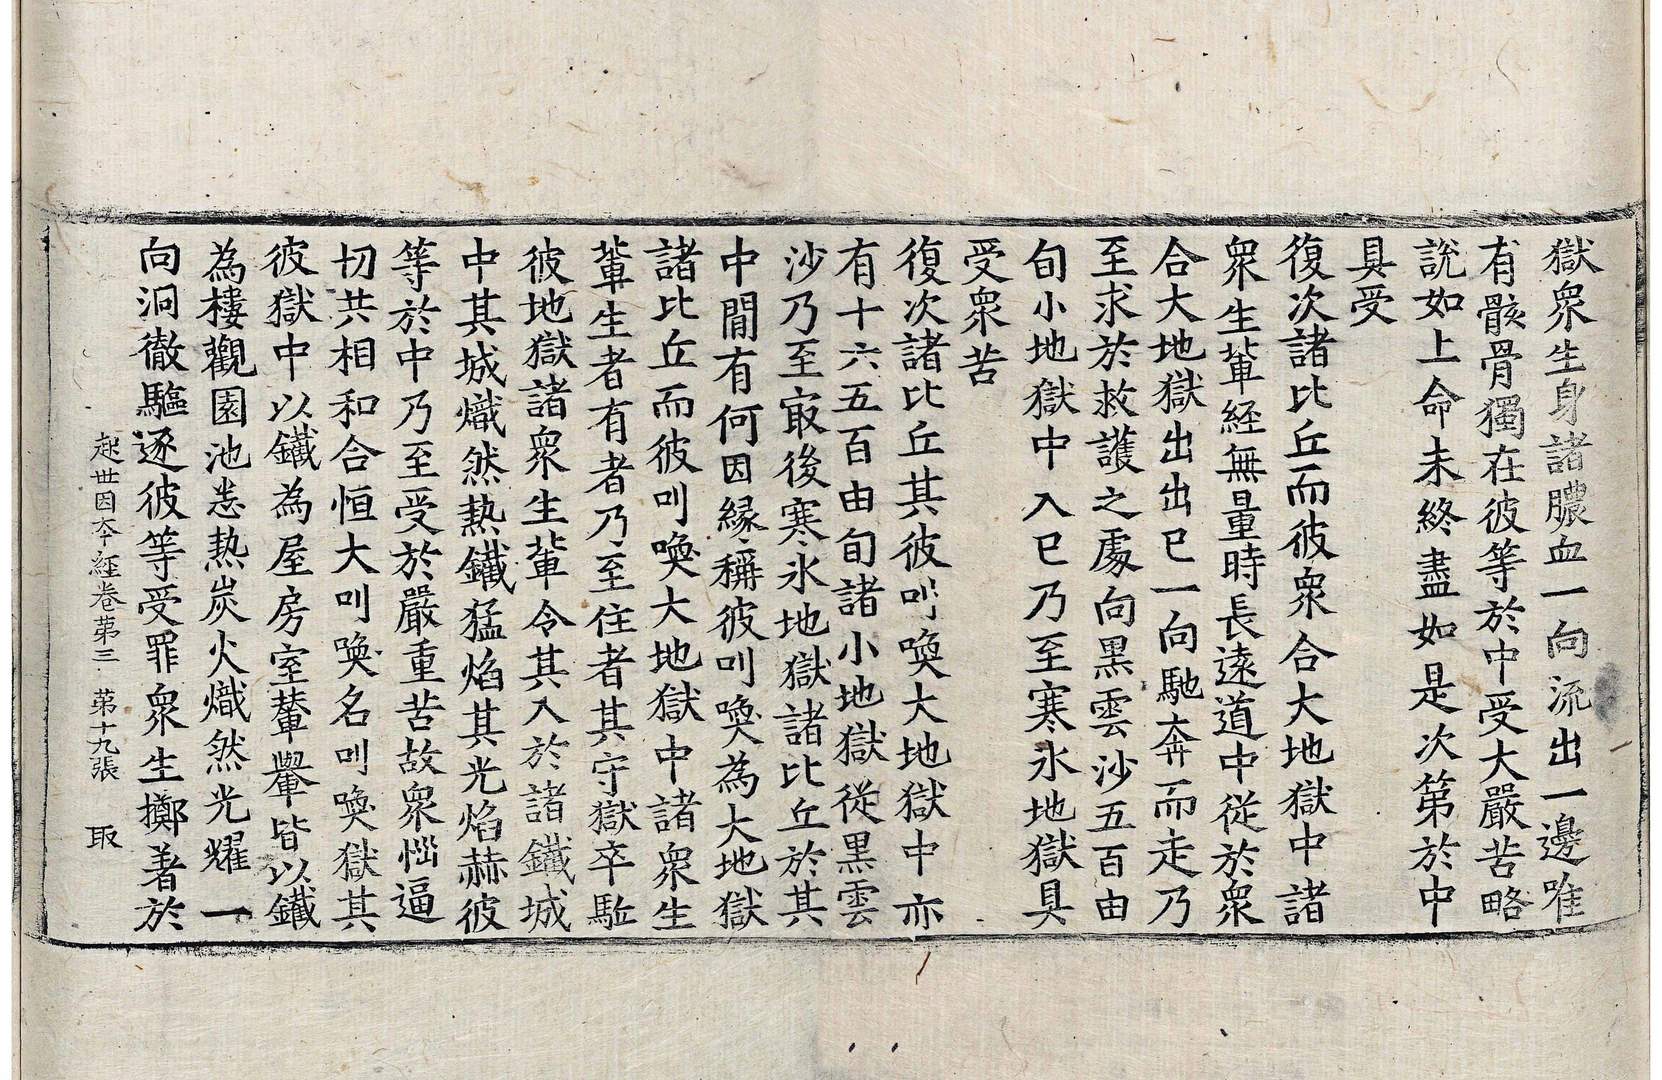 獄衆生身諸膿血一向流出一邊唯
有骸骨獨在彼等於中受大嚴苦略
說如上命未終盡如是次第於中
具受
復次諸比丘而彼衆合大地獄中諸
衆生軰經無量時長遠道中從於衆
合大地獄出出已一向馳奔而走乃
至求於救護之處向黒雲沙五百由
旬小地獄中入已乃至寒氷地獄具
受衆苦
復次諸比丘其彼叫喚大地獄中亦
有十六五百由旬諸小地獄從黒雲
沙乃至㝡後寒氷地獄諸比丘於其
中間有何因緣稱彼叫喚為大地獄
諸比丘而彼叫喚大地獄中諸衆生
軰生者有者乃至住者其守獄卒駈
彼地獄諸衆生軰令其入於諸鐵城
中其城熾然熱鐵猛焰其光焰赫彼
等於中乃至受於嚴重苦故衆惱逼
切共相和合恒大叫喚名叫喚獄其
彼獄中以鐵為屋房室輦轝皆以鐵
為樓觀園池悉熱炭火熾然光耀一
向洞徹驅逐彼等受罪衆生擲著於
起世因夲經卷第三　第十九張　取